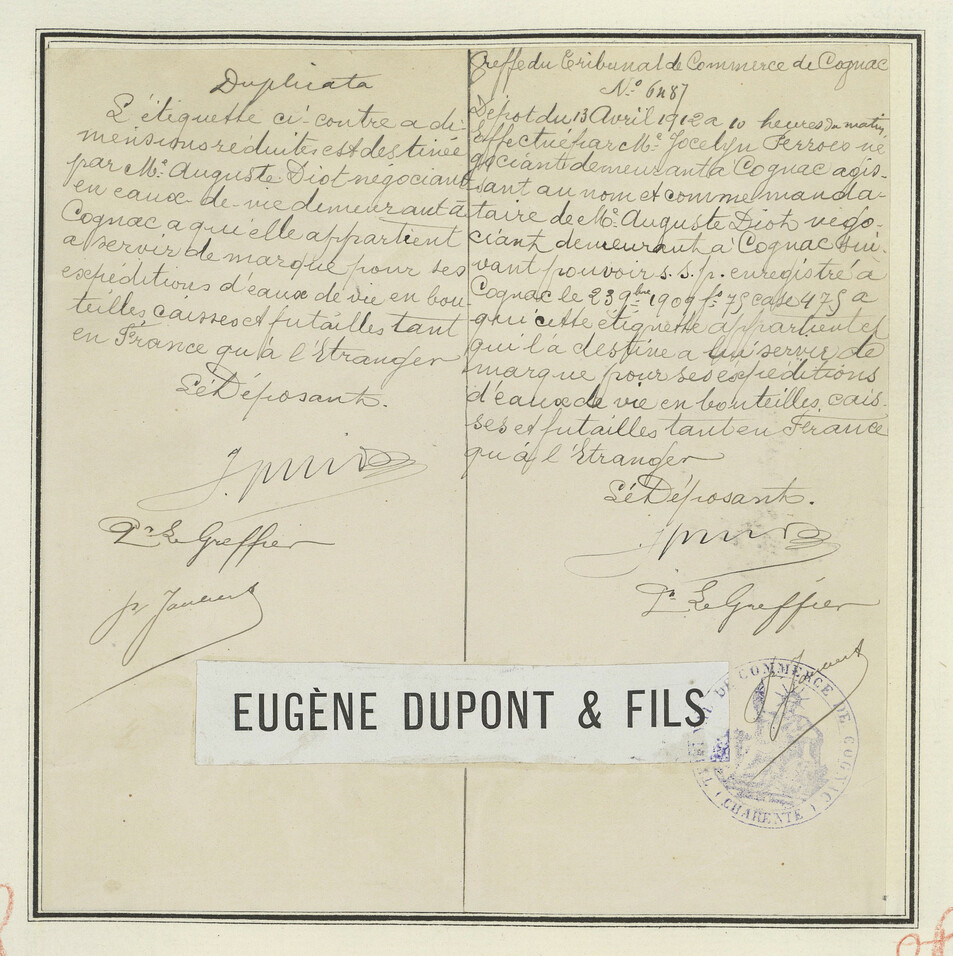 Duplicata
L'étiquette ci-contre a di-
mensions réduites est destinée
par Mr. Auguste Diot negociant
en eaux-de-vie demeurant à
Cognac a qui elle appartient
a servir de marque pour ses
expéditions d'eaux de vie en bou-
teilles caisses et futailles tant
en France qu'à l'Etranger
Le Déposant.
Pr Le Greffier
Greffe du Tribunal de Commerce de Cognac
No. 6487
Dépot du 13 Avril 1912 a 10 heures du matin,
Effectué par Mr. Jocelyn ne
gociant demeurant à Cognac agis-
sant au nom et comme manda-
taire de Mr. Auguste Diot négo-
ciant demeurant à Cognac sui-
vant pouvoir s.s.p. enregistré à
Cognac le 23 9bre 1909 fo 75 case 475 a
qui cette étiquette appartient et
qui la destine a lui servir de
marque pour ses expéditions
d'eaux de vie en bouteilles, cais-
ses et futailles tant en France
qu'à l'Etranger
Le Déposant.
Pr Le Greffier
EUGÈNE DUPONT & FILS
DE COMMERCE DE COGNAC
(CHARENTE)